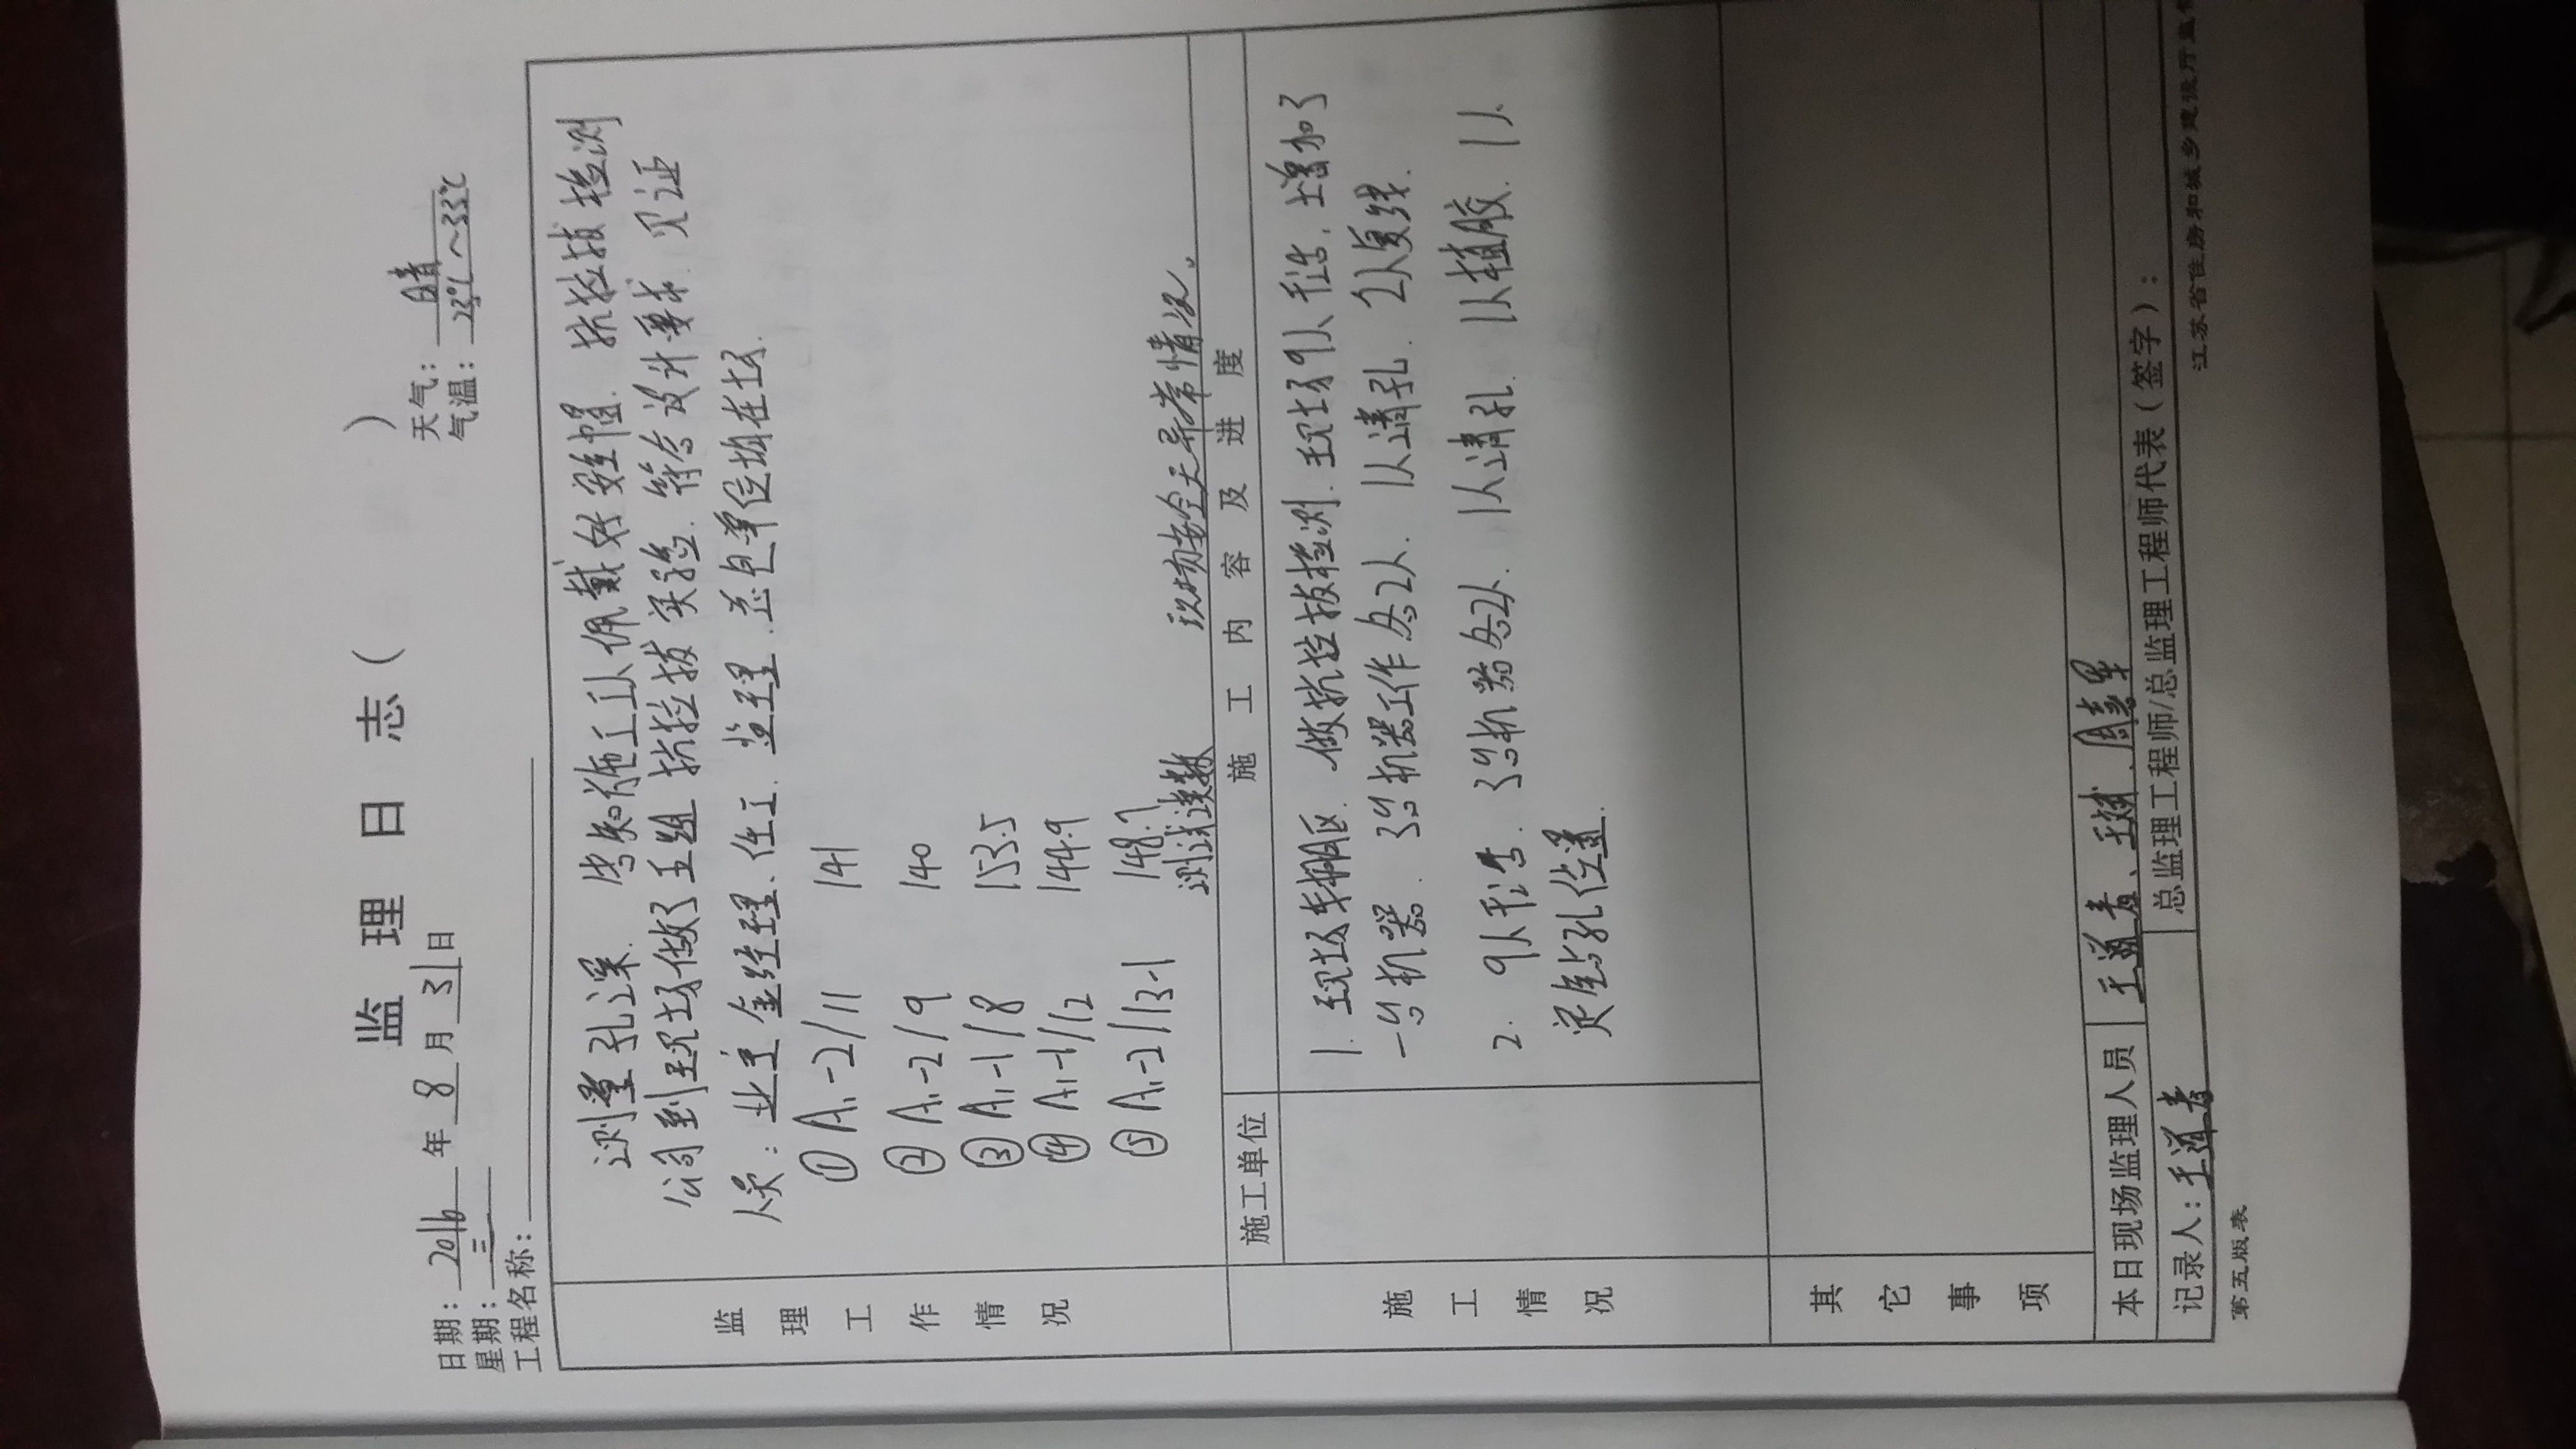 监理日志（ ）
日期：2016年8月31日 天气：晴
星期：三 气温：23℃～33℃
工程名称：
监理工作情况
测量孔深. 告知施工人佩戴好安全帽. 抗拉拔检测
公司到现场做了五组抗拉拔实验. 符合设计要求. 见证
人员：业主金经理、任工. 监理. 总包单位均在场.
① A1-2/11 141
② A1-2/9 140
③ A1-1/8 153.5
④ A1-1/12 144.9
⑤ A1-2/13-1 148.7
测试读数 现场安全无异常情况。
施工情况
施工单位 施工内容及进度
1. 现场车棚区. 做抗拉拔检测. 现场9人 增加了
一台机器. 3台机器工作各2人. 1人清孔. 2人复绿.
2. 9人 3台机器各2人. 1人清孔. 1人植胶. 1人
定钻孔位置.
其它事项
本日现场监理人员 王道青、王斌、
记录人：王道青 总监理工程师/总监理工程师代表（签字）：
第五版表 江苏省住房和城乡建设厅监